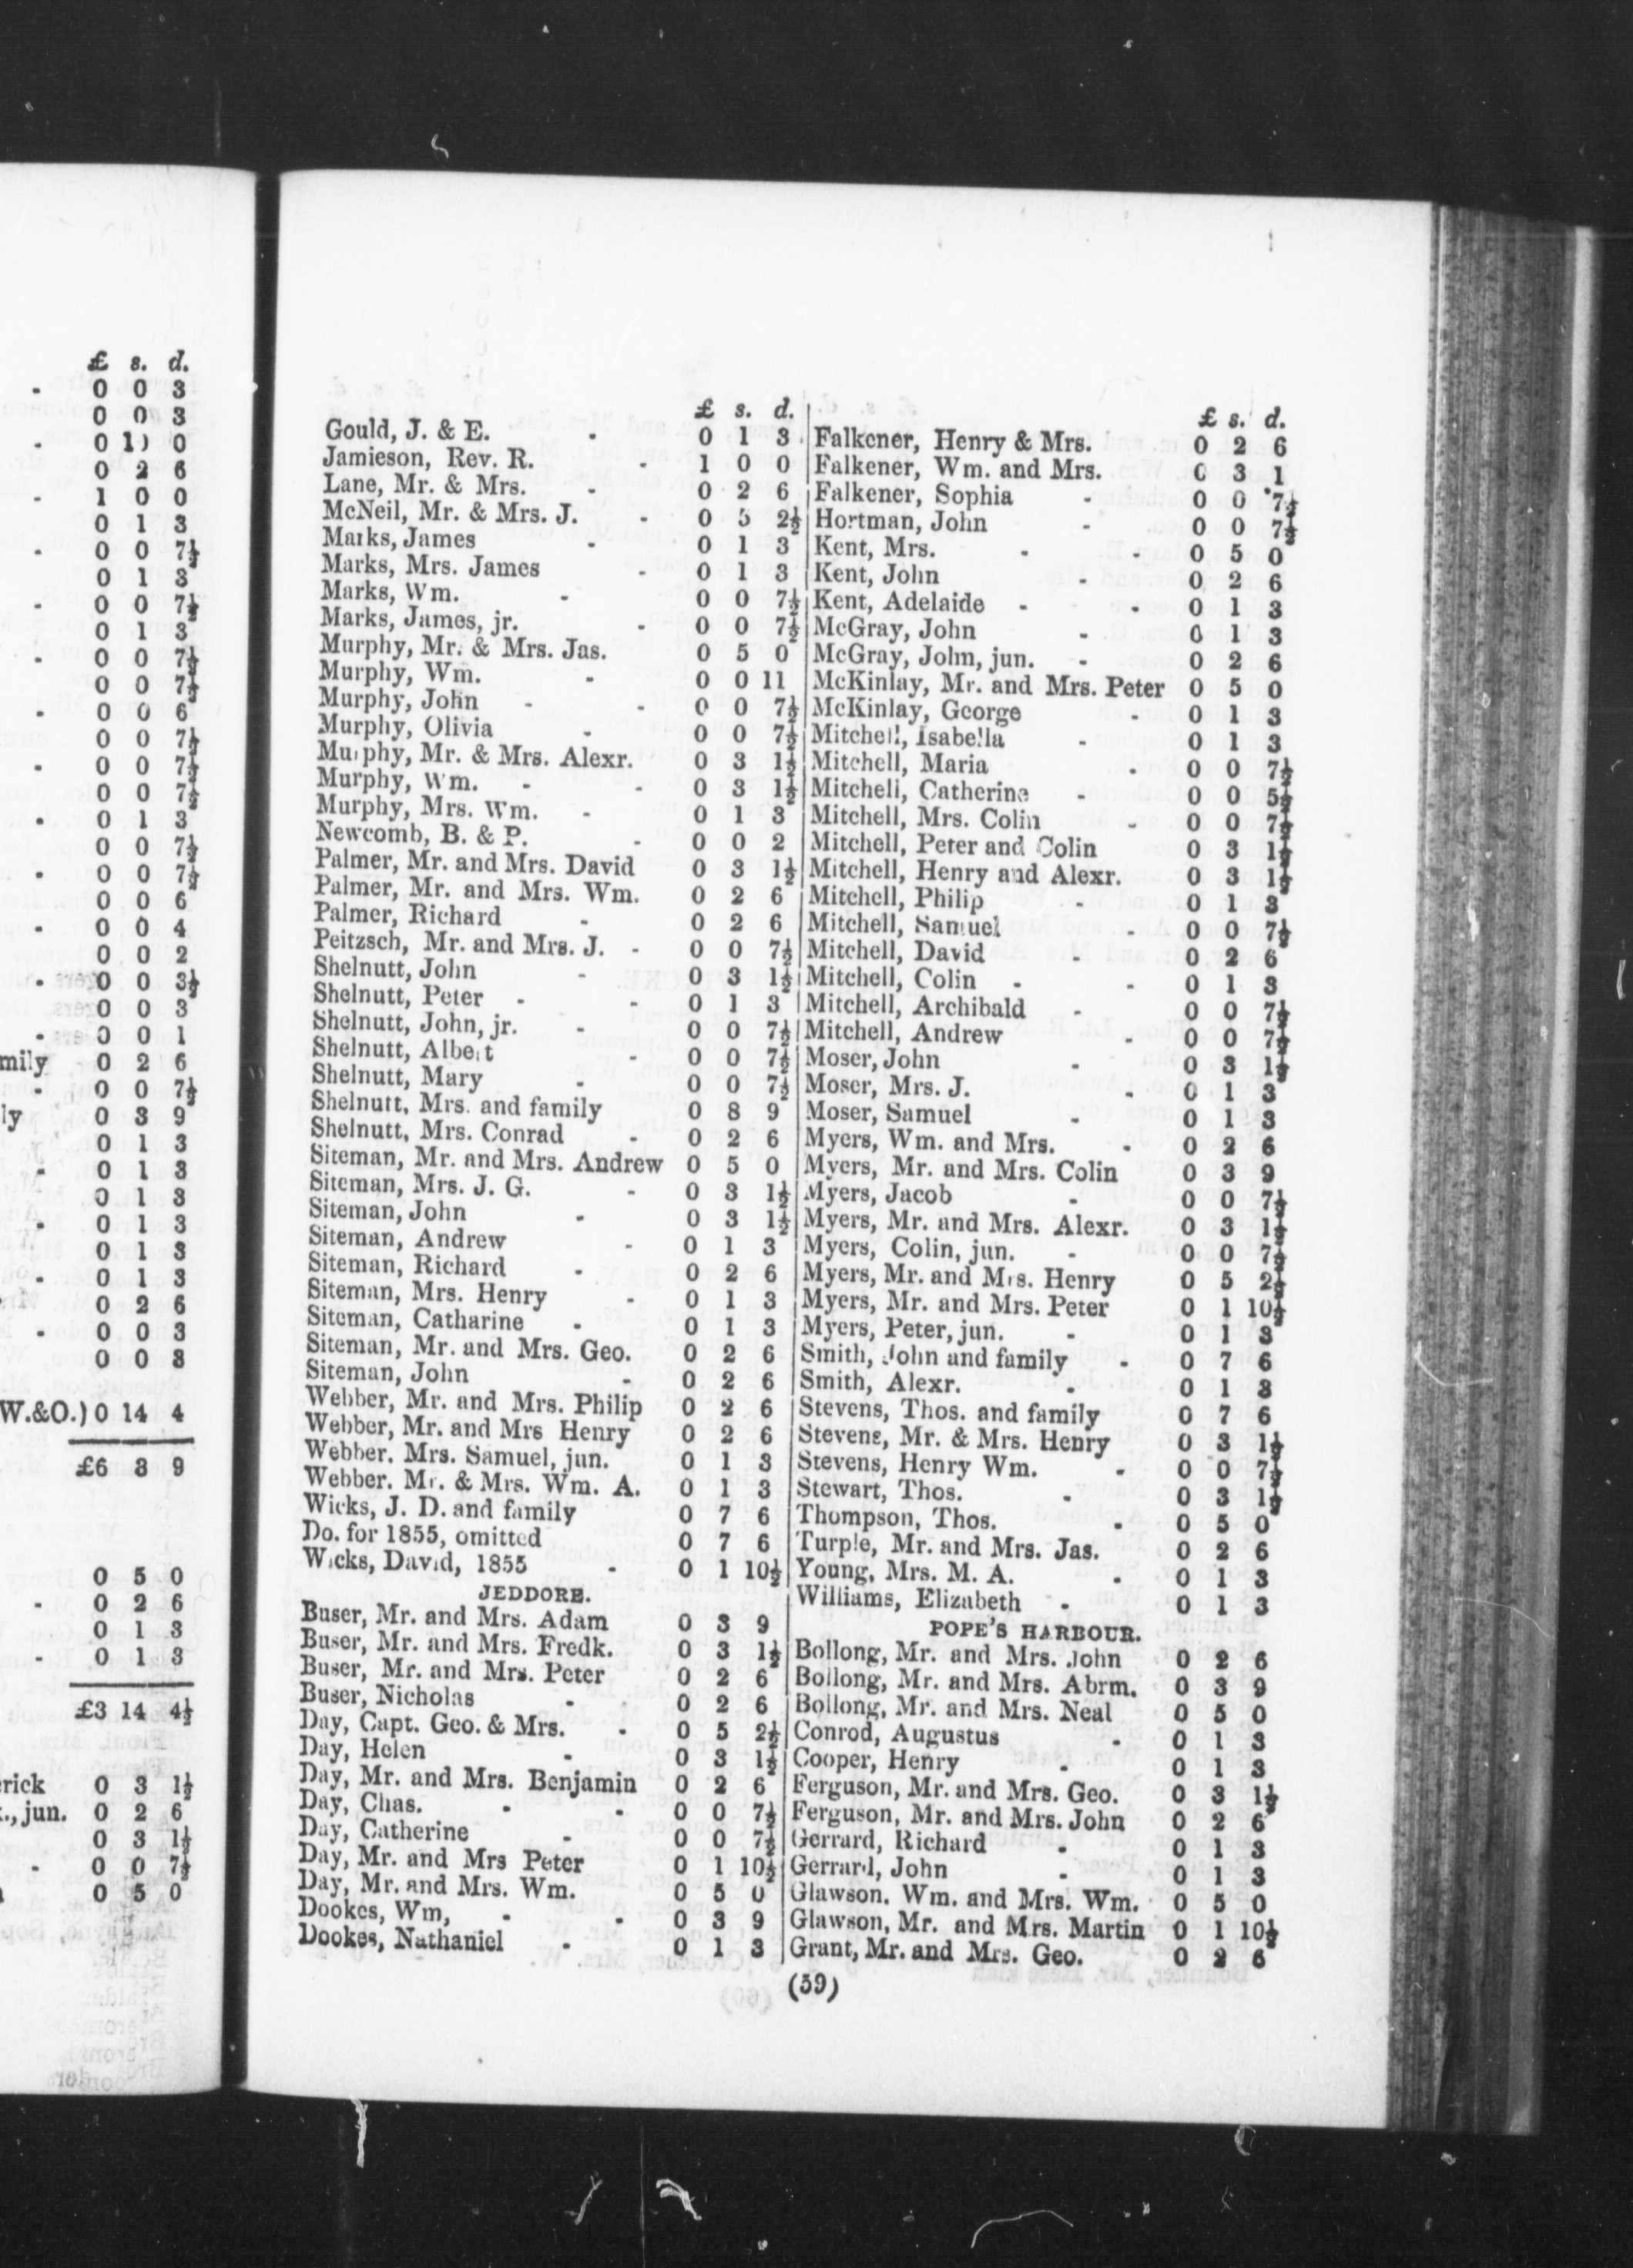 £ s. d.
- 0 0 3
0 0 3
- 0 1) 0
0 2 6
- 1 0 0
0 1 3
- 0 0 7½
0 1 3
- 0 0 7½
0 1 3
- 0 0 7½
0 0 7½
- 0 0 6
0 0 7½
- 0 0 7½
0 0 7½
- 0 1 3
0 0 7½
- 0 0 7½
0 0 6
- 0 0 4
0 0 2
- 0 0 3½
0 0 3
- 0 0 1
mily 0 2 6
- 0 0 7½
ly 0 3 9
0 1 3
- 0 1 3
0 1 3
- 0 1 3
0 1 3
- 0 1 3
0 2 6
- 0 0 3
0 0 3
W.&O.) 0 14 4
£6 3 9
0 5 0
- 0 2 6
0 1 3
- 0 1 3
£3 14 4½
erick 0 3 1½
., jun. 0 2 6
0 3 1½
- 0 0 7½
0 5 0
£ s. d.
Gould, J. & E. - 0 1 3
Jamieson, Rev. R. - 1 0 0
Lane, Mr. & Mrs. - 0 2 6
McNeil, Mr. & Mrs. J. - 0 5 2½
Marks, James - 0 1 3
Marks, Mrs. James - 0 1 3
Marks, Wm. - 0 0 7½
Marks, James, jr. - 0 0 7½
Murphy, Mr. & Mrs. Jas. 0 5 0
Murphy, Wm. - 0 0 11
Murphy, John - - 0 0 7½
Murphy, Olivia - 0 0 7½
Murphy, Mr. & Mrs. Alexr. 0 3 1½
Murphy, Wm. - - 0 3 1½
Murphy, Mrs. Wm. - 0 1 3
Newcomb, B. & P. - 0 0 2
Palmer, Mr. and Mrs. David 0 3 1½
Palmer, Mr. and Mrs. Wm. 0 2 6
Palmer, Richard - 0 2 6
Peitzsch, Mr. and Mrs. J. - 0 0 7½
Shelnutt, John - 0 3 1½
Shelnutt, Peter - - 0 1 3
Shelnutt, John, jr. - 0 0 7½
Shelnutt, Albert - 0 0 7½
Shelnutt, Mary - 0 0 7½
Shelnutt, Mrs. and family 0 8 9
Shelnutt, Mrs. Conrad - 0 2 6
Siteman, Mr. and Mrs. Andrew 0 5 0
Siteman, Mrs. J. G. - 0 3 1½
Siteman, John - 0 3 1½
Siteman, Andrew - 0 1 3
Siteman, Richard - 0 2 6
Siteman, Mrs. Henry - 0 1 3
Siteman, Catharine - 0 1 3
Siteman, Mr. and Mrs. Geo. 0 2 6
Siteman, John - 0 2 6
Webber, Mr. and Mrs. Philip 0 2 6
Webber, Mr. and Mrs Henry 0 2 6
Webber. Mrs. Samuel, jun. 0 1 3
Webber. Mr. & Mrs. Wm. A. 0 1 3
Wicks, J. D. and family 0 7 6
Do. for 1855, omitted 0 7 6
Wicks, David, 1855 - 0 1 10½
JEDDORE.
Buser, Mr. and Mrs. Adam 0 3 9
Buser, Mr. and Mrs. Fredk. 0 3 1½
Buser, Mr. and Mrs. Peter 0 2 6
Buser, Nicholas - 0 2 6
Day, Capt. Geo. & Mrs. - 0 5 2½
Day, Helen - 0 3 1½
Day, Mr. and Mrs. Benjamin 0 2 6
Day, Chas. - - 0 0 7½
Day, Catherine - 0 0 7½
Day, Mr. and Mrs Peter 0 1 10½
Day, Mr. and Mrs. Wm. 0 5 0
Dookes, Wm, - - 0 3 9
Dookes, Nathaniel - 0 1 3
£ s. d.
Falkener, Henry & Mrs. 0 2 6
Falkener, Wm. and Mrs. 0 3 1
Falkener, Sophia - 0 0 7½
Hortman, John - 0 0 7½
Kent, Mrs. - - 0 5 0
Kent, John - 0 2 6
Kent, Adelaide - - 0 1 3
McGray, John - 0 1 3
McGray, John, jun. - 0 2 6
McKinlay, Mr. and Mrs. Peter 0 5 0
McKinlay, George - 0 1 3
Mitchell, Isabella - 0 1 3
Mitchell, Maria - 0 0 7½
Mitchell, Catherine - 0 0 5½
Mitchell, Mrs. Colin - 0 0 7½
Mitchell, Peter and Colin 0 3 1½
Mitchell, Henry and Alexr. 0 3 1½
Mitchell, Philip - 0 1 3
Mitchell, Samuel - 0 0 7½
Mitchell, David - 0 2 6
Mitchell, Colin - - 0 1 3
Mitchell, Archibald - 0 0 7½
Mitchell, Andrew - 0 0 7½
Moser, John - 0 3 1½
Moser, Mrs. J. - 0 1 3
Moser, Samuel - 0 1 3
Myers, Wm. and Mrs. - 0 2 6
Myers, Mr. and Mrs. Colin 0 3 9
Myers, Jacob - 0 0 7½
Myers, Mr. and Mrs. Alexr. 0 3 1½
Myers, Colin, jun. - 0 0 7½
Myers, Mr. and Mrs. Henry 0 5 2½
Myers, Mr. and Mrs. Peter 0 1 10½
Myers, Peter, jun. - 0 1 3
Smith, John and family - 0 7 6
Smith, Alexr. - 0 1 3
Stevens, Thos. and family 0 7 6
Stevens, Mr. & Mrs. Henry 0 3 1½
Stevens, Henry Wm. - 0 0 7½
Stewart, Thos. - 0 3 1½
Thompson, Thos. - 0 5 0
Turple, Mr. and Mrs. Jas. 0 2 6
Young, Mrs. M. A. - 0 1 3
Williams, Elizabeth - 0 1 3
POPE'S HARBOUR.
Bollong, Mr. and Mrs. John 0 2 6
Bollong, Mr. and Mrs. Abrm. 0 3 9
Bollong, Mr. and Mrs. Neal 0 5 0
Conrod, Augustus - 0 1 3
Cooper, Henry - 0 1 3
Ferguson, Mr. and Mrs. Geo. 0 3 1½
Ferguson, Mr. and Mrs. John 0 2 6
Gerrard, Richard - 0 1 3
Gerrard, John - 0 1 3
Glawson. Wm. and Mrs. Wm. 0 5 0
Glawson, Mr. and Mrs. Martin 0 1 10½
Grant, Mr. and Mrs. Geo. 0 2 6
(59)